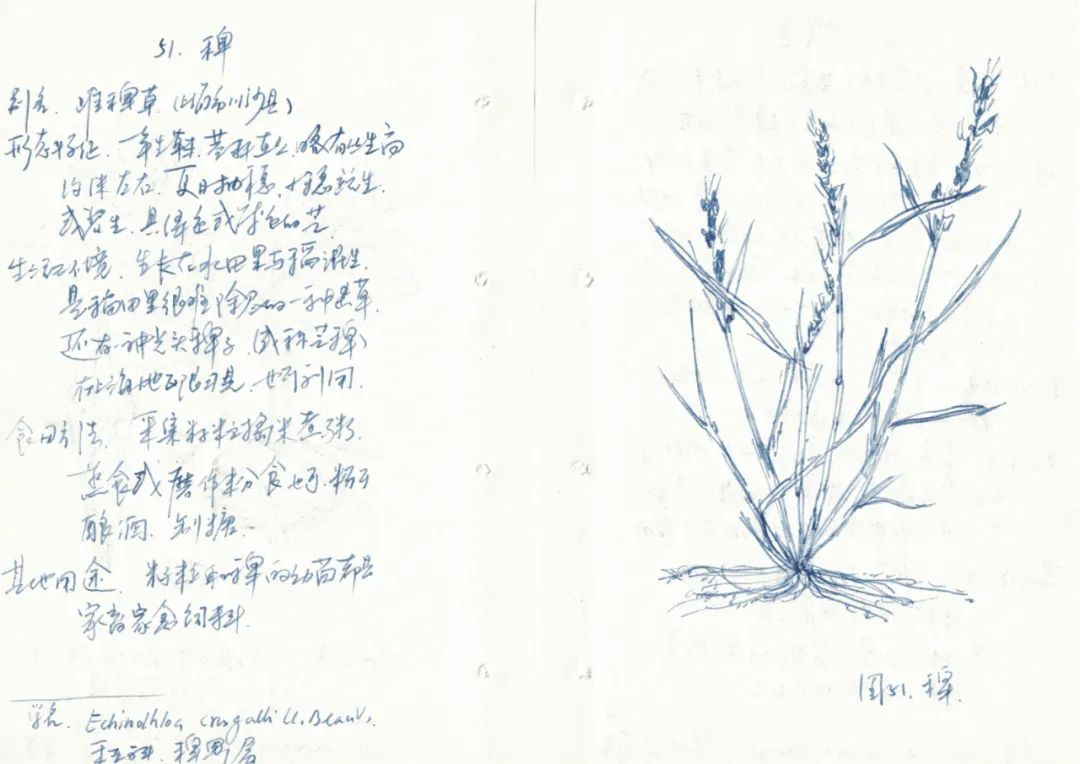 51. 稗
别名. 稗草 (川沙县)
形态特征. 一年生草. 茎秆直立. 略有丛生高
约1米左右. 夏日抽穗. 小穗簇生.
或密生. 具绿色或紫色的芒.
生活环境. 生长在水田里与稻混生.
是稻田里很难除尽的一种恶草.
还有一种光头稗子 (或称芒稗)
在上海地区很习见. 也可利用.
食用方法. 采集籽粒捣米煮粥.
蒸食或磨作粉食也可. 籽可
酿酒. 制糖.
其他用途. 籽粒和稗的幼苗都是
家畜家禽饲料.
学名. Echinochloa crusgalli (L. Beauv.
禾本科. 稗属
图51. 稗.